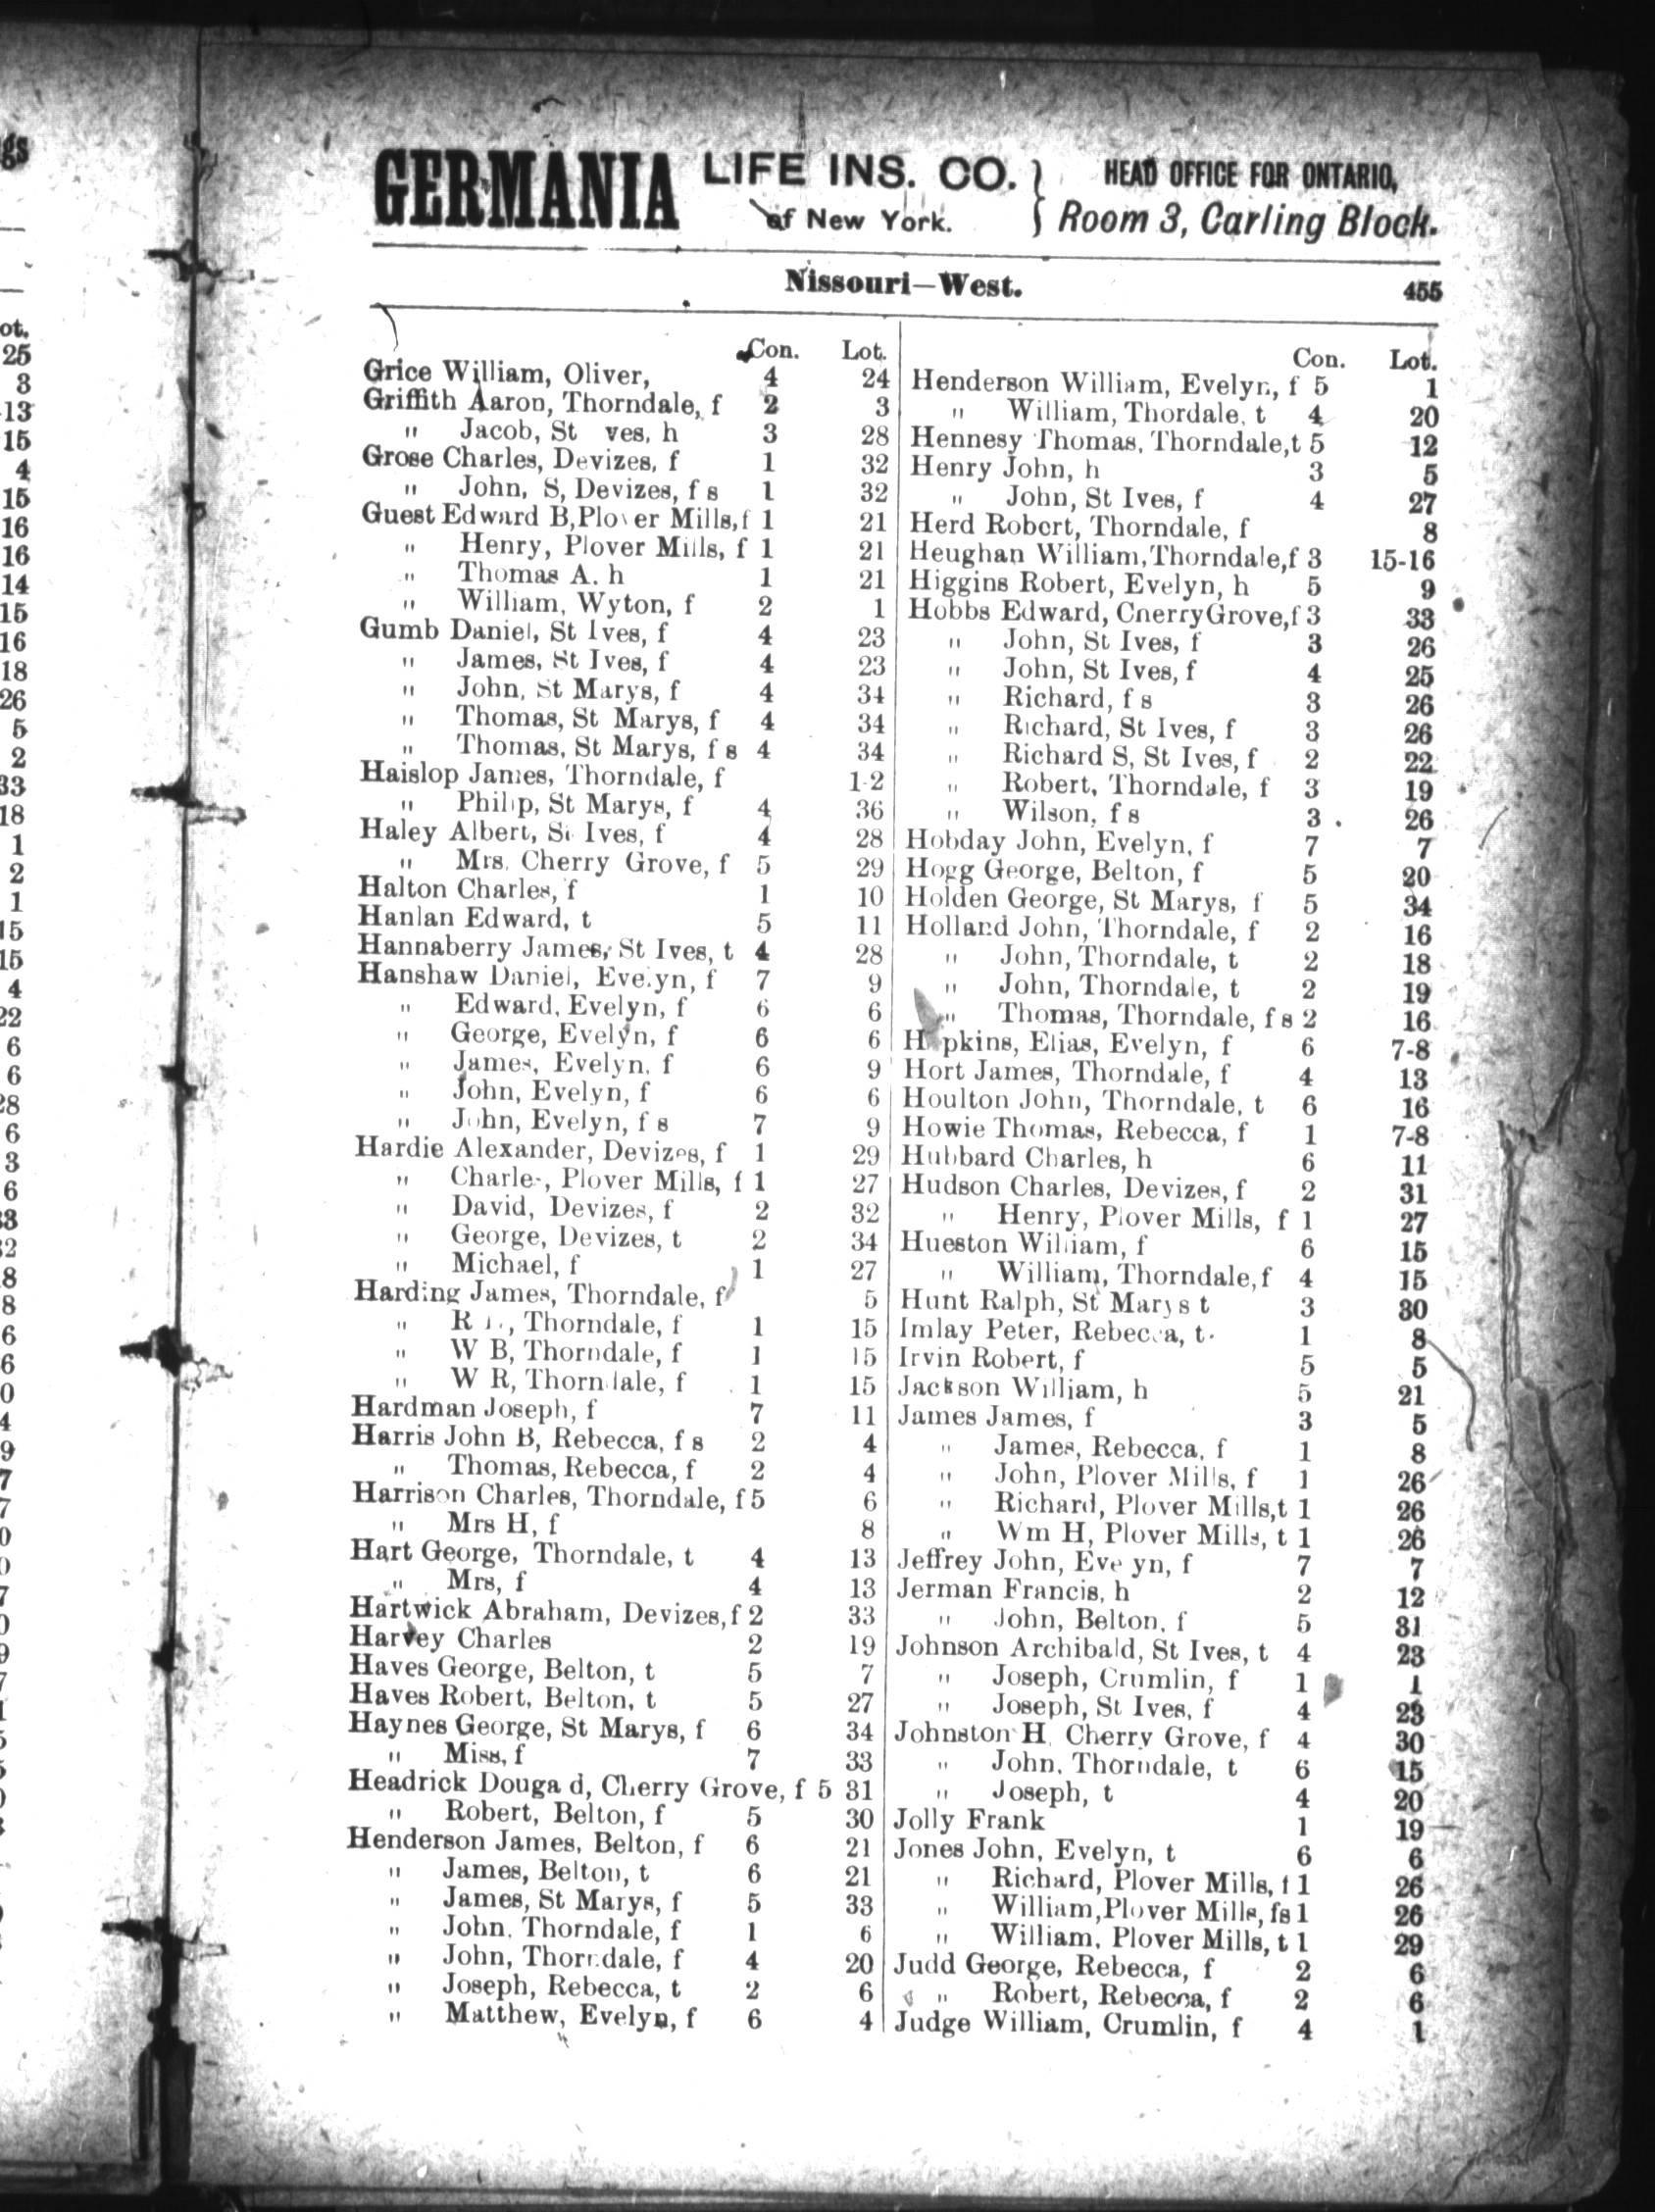 GERMANIA LIFE INS. CO. of New York. } HEAD OFFICE FOR ONTARIO, Room 3, Carling Block.
Nissouri—West. 455
Con. Lot.
Grice William, Oliver, 4 24
Griffith Aaron, Thorndale, f 2 3
" Jacob, St ves, h 3 28
Grose Charles, Devizes, f 1 32
" John, S, Devizes, f s 1 32
Guest Edward B, Plover Mills, f 1 21
" Henry, Plover Mills, f 1 21
" Thomas A. h 1 21
" William, Wyton, f 2 1
Gumb Daniel, St Ives, f 4 23
" James, St Ives, f 4 23
" John, St Marys, f 4 34
" Thomas, St Marys, f 4 34
" Thomas, St Marys, f s 4 34
Haislop James, Thorndale, f 1-2
" Philip, St Marys, f 4 36
Haley Albert, St Ives, f 4 28
" Mrs, Cherry Grove, f 5 29
Halton Charles, f 1 10
Hanlan Edward, t 5 11
Hannaberry James, St Ives, t 4 28
Hanshaw Daniel, Evelyn, f 7 9
" Edward, Evelyn, f 6 6
" George, Evelyn, f 6 6
" James, Evelyn, f 6 9
" John, Evelyn, f 6 6
" John, Evelyn, f s 7 9
Hardie Alexander, Devizes, f 1 29
" Charles, Plover Mills, f 1 27
" David, Devizes, f 2 32
" George, Devizes, t 2 34
" Michael, f 1 27
Harding James, Thorndale, f 5
" R , Thorndale, f 1 15
" W B, Thorndale, f 1 15
" W R, Thorndale, f 1 15
Hardman Joseph, f 7 11
Harris John B, Rebecca, f s 2 4
" Thomas, Rebecca, f 2 4
Harrison Charles, Thorndale, f 5 6
" Mrs H, f 8
Hart George, Thorndale, t 4 13
" Mrs, f 4 13
Hartwick Abraham, Devizes, f 2 33
Harvey Charles 2 19
Haves George, Belton, t 5 7
Haves Robert, Belton, t 5 27
Haynes George, St Marys, f 6 34
" Miss, f 7 33
Headrick Douga d, Cherry Grove, f 5 31
" Robert, Belton, f 5 30
Henderson James, Belton, f 6 21
" James, Belton, t 6 21
" James, St Marys, f 5 33
" John, Thorndale, f 1 6
" John, Thorndale, f 4 20
" Joseph, Rebecca, t 2 6
" Matthew, Evelyn, f 6 4
Con. Lot.
Henderson William, Evelyn, f 5 1
" William, Thordale, t 4 20
Hennesy Thomas, Thorndale, t 5 12
Henry John, h 3 5
" John, St Ives, f 4 27
Herd Robert, Thorndale, f 8
Heughan William, Thorndale, f 3 15-16
Higgins Robert, Evelyn, h 5 9
Hobbs Edward, CherryGrove, f 3 33
" John, St Ives, f 3 26
" John, St Ives, f 4 25
" Richard, f s 3 26
" Richard, St Ives, f 3 26
" Richard S, St Ives, f 2 22
" Robert, Thorndale, f 3 19
" Wilson, f s 3 26
Hobday John, Evelyn, f 7 7
Hogg George, Belton, f 5 20
Holden George, St Marys, f 5 34
Holland John, Thorndale, f 2 16
" John, Thorndale, t 2 18
" John, Thorndale, t 2 19
" Thomas, Thorndale, f s 2 16
H pkins, Elias, Evelyn, f 6 7-8
Hort James, Thorndale, f 4 13
Houlton John, Thorndale, t 6 16
Howie Thomas, Rebecca, f 1 7-8
Hubbard Charles, h 6 11
Hudson Charles, Devizes, f 2 31
" Henry, Plover Mills, f 1 27
Hueston William, f 6 15
" William, Thorndale, f 4 15
Hunt Ralph, St Marys t 3 30
Imlay Peter, Rebecca, t. 1 8
Irvin Robert, f 5 5
Jackson William, h 5 21
James James, f 3 5
" James, Rebecca, f 1 8
" John, Plover Mills, f 1 26
" Richard, Plover Mills, t 1 26
" Wm H, Plover Mills, t 1 26
Jeffrey John, Eve yn, f 7 7
Jerman Francis, h 2 12
" John, Belton, f 5 31
Johnson Archibald, St Ives, t 4 23
" Joseph, Crumlin, f 1 1
" Joseph, St Ives, f 4 23
Johnston H, Cherry Grove, f 4 30
" John, Thorndale, t 6 15
" Joseph, t 4 20
Jolly Frank 1 19
Jones John, Evelyn, t 6 6
" Richard, Plover Mills, f 1 26
" William, Plover Mills, fs 1 26
" William, Plover Mills, t 1 29
Judd George, Rebecca, f 2 6
" Robert, Rebecca, f 2 6
Judge William, Crumlin, f 4 1